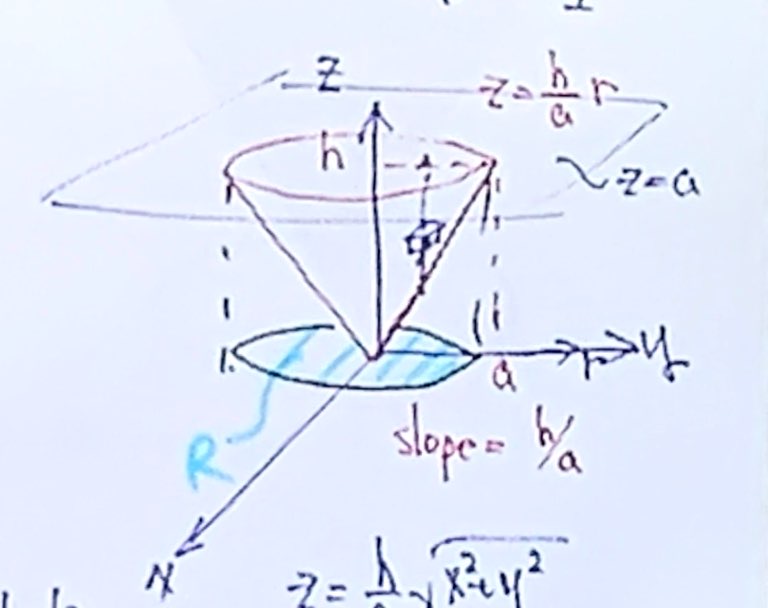 z
z = h/a r
h
z = a
a
r
y
slope = h/a
R
x
z = h/a √x²+y²